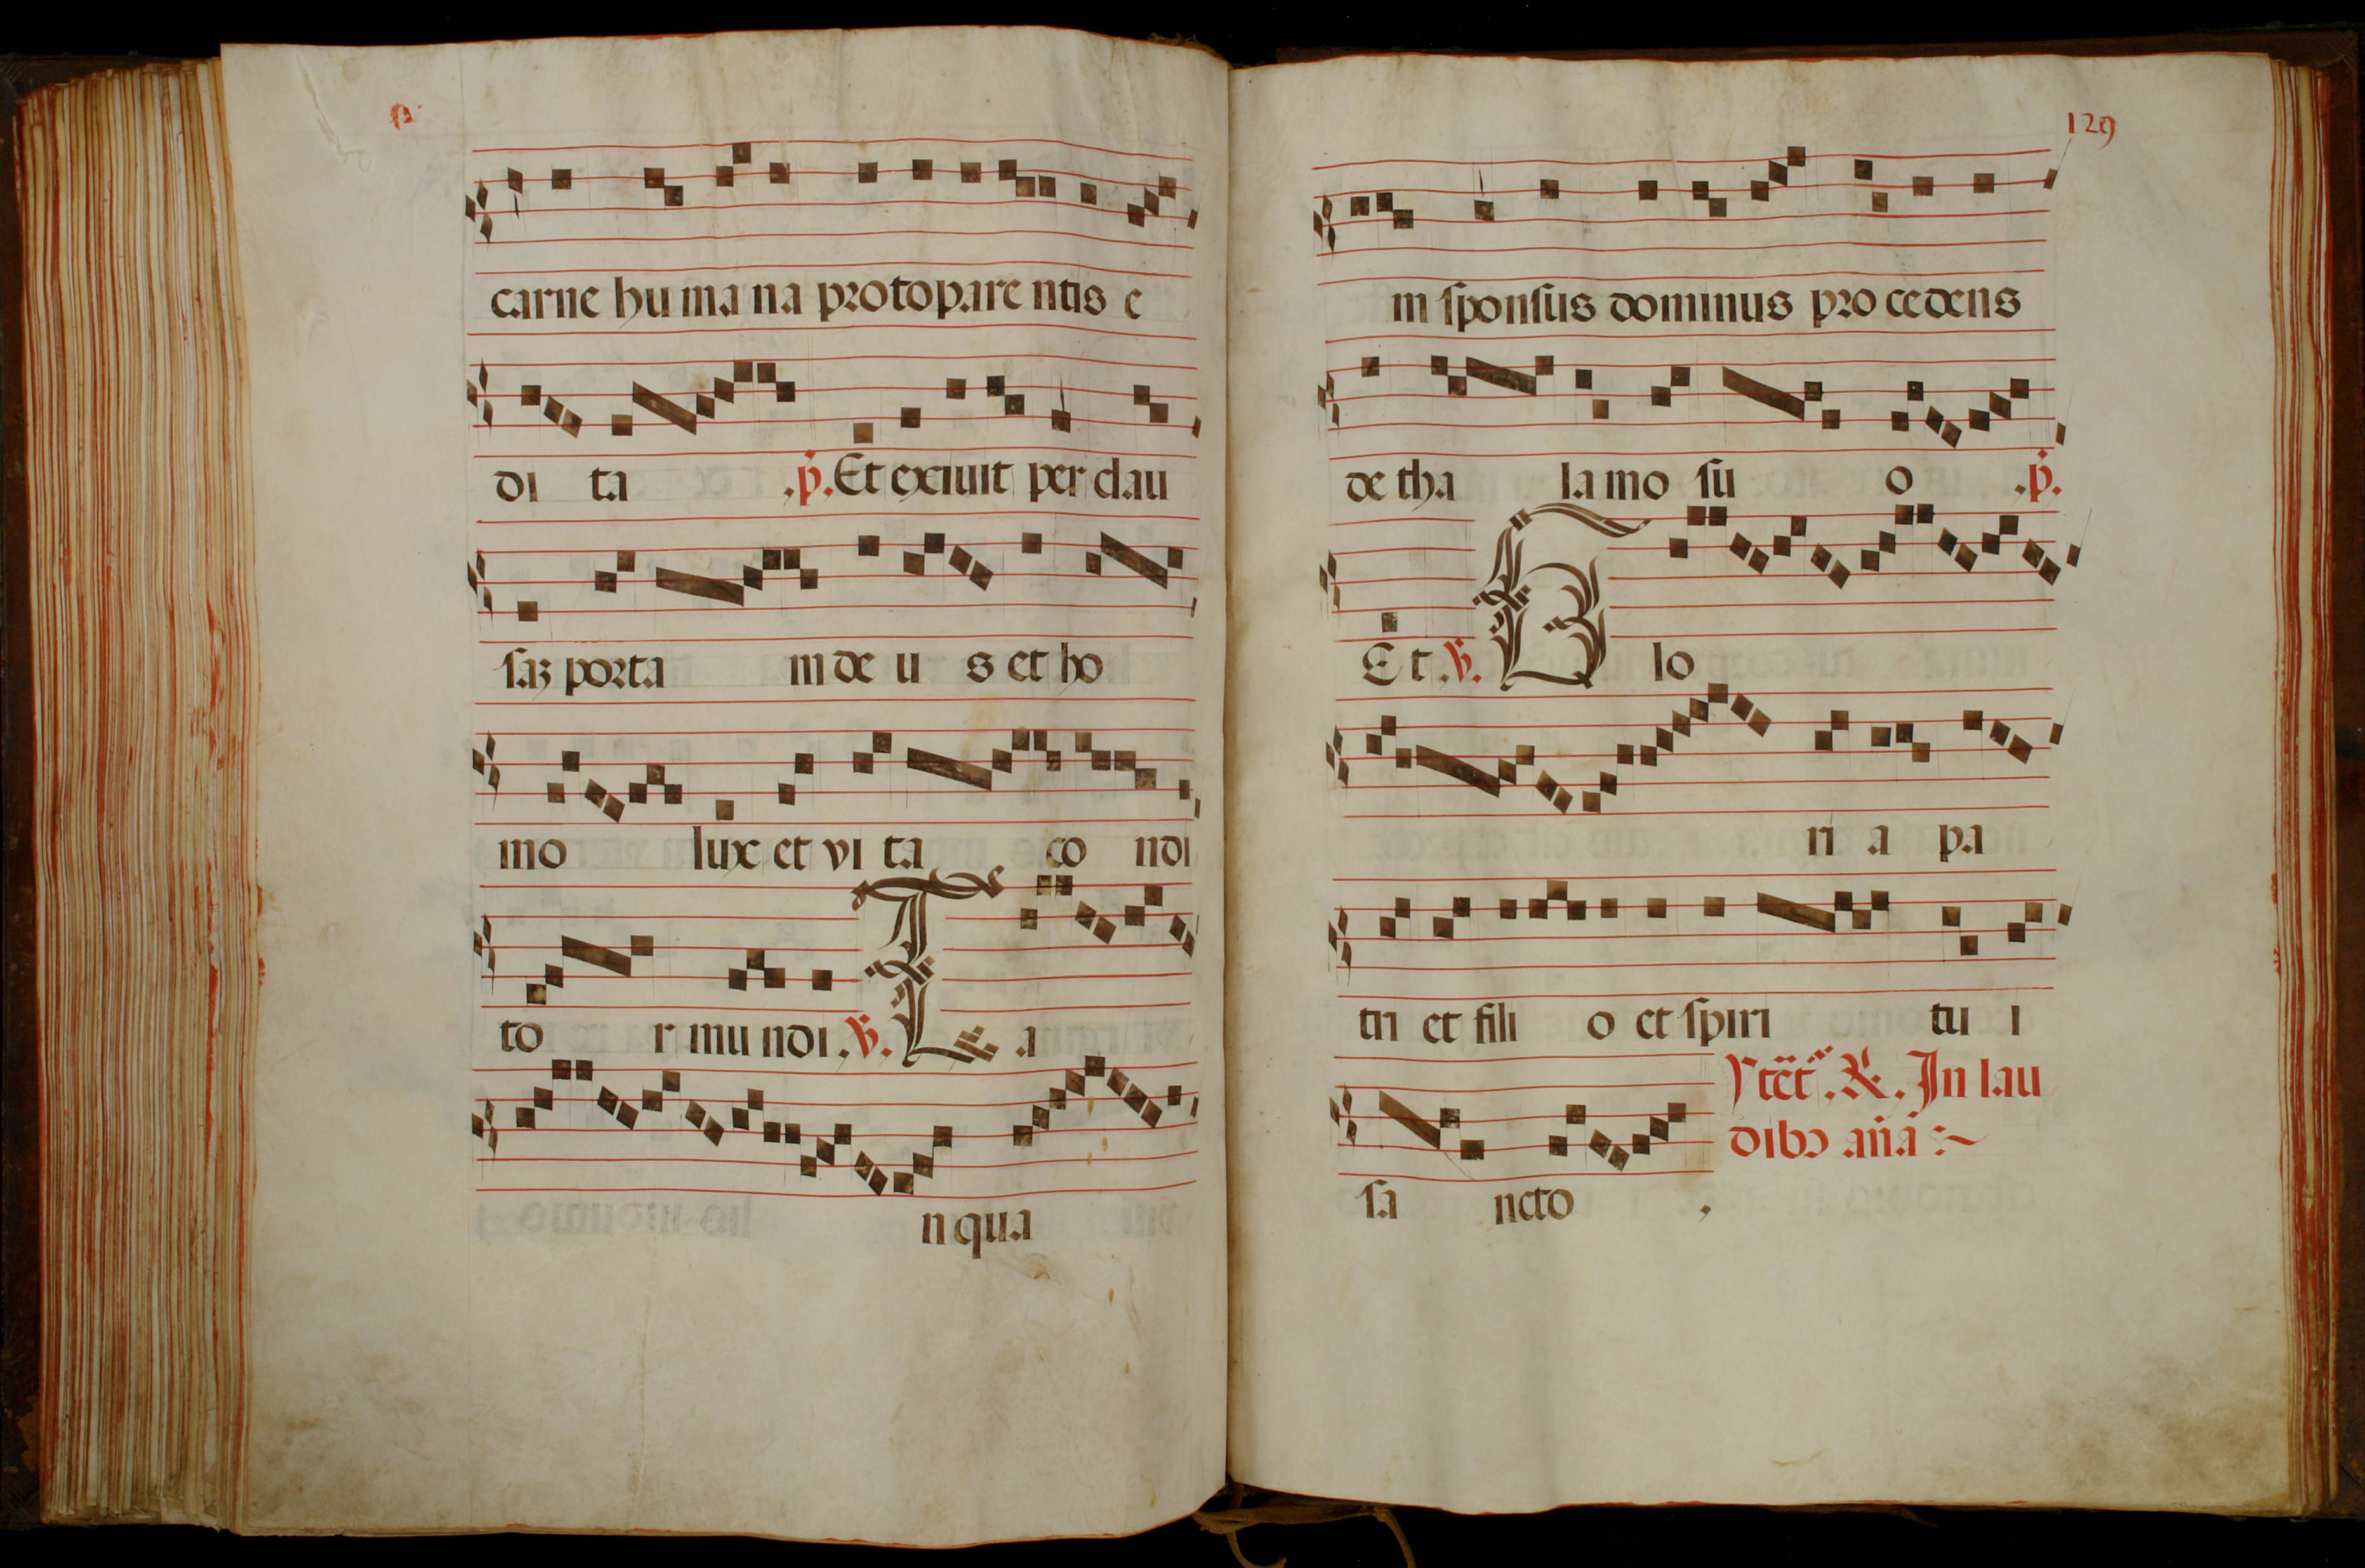 carne hu ma na protopare ntis e
di ta .p. Et exiuit per clau
saz porta m de u s et ho
mo lux et vi ta co ndi
to r mu ndi .V. T a
n qua
129
m sponsus dominus pro cedens
de tha la mo su o .p.
Et .V. G lo
ri a pa
tri et fili o et spiri tu i
sa ncto .
In lau
dibꝰ aña